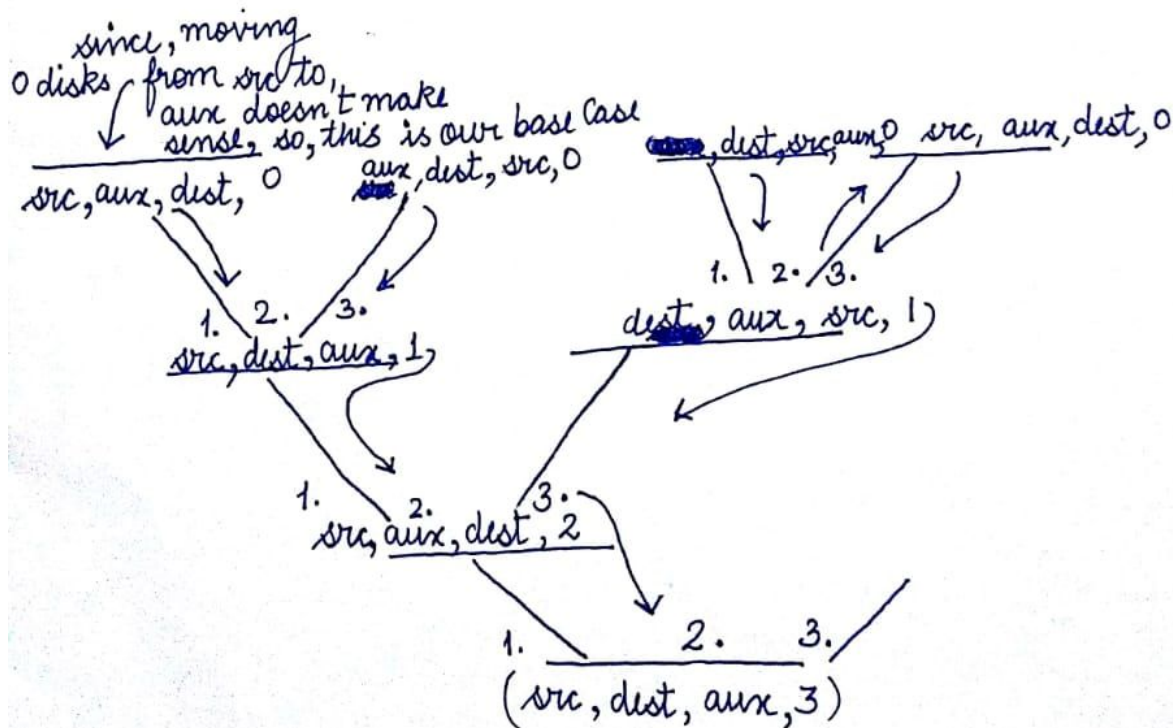 since, moving
0 disks from src to,
aux doesn't make
sense, so, this is our base case
src, aux, dest, 0
aux, dest, src, 0
, dest, src, aux, 0
src, aux, dest, 0
1. 2. 3.
src, dest, aux, 1
1. 2. 3.
dest, aux, src, 1
1. 2. 3.
src, aux, dest, 2
1. 2. 3.
(src, dest, aux, 3)